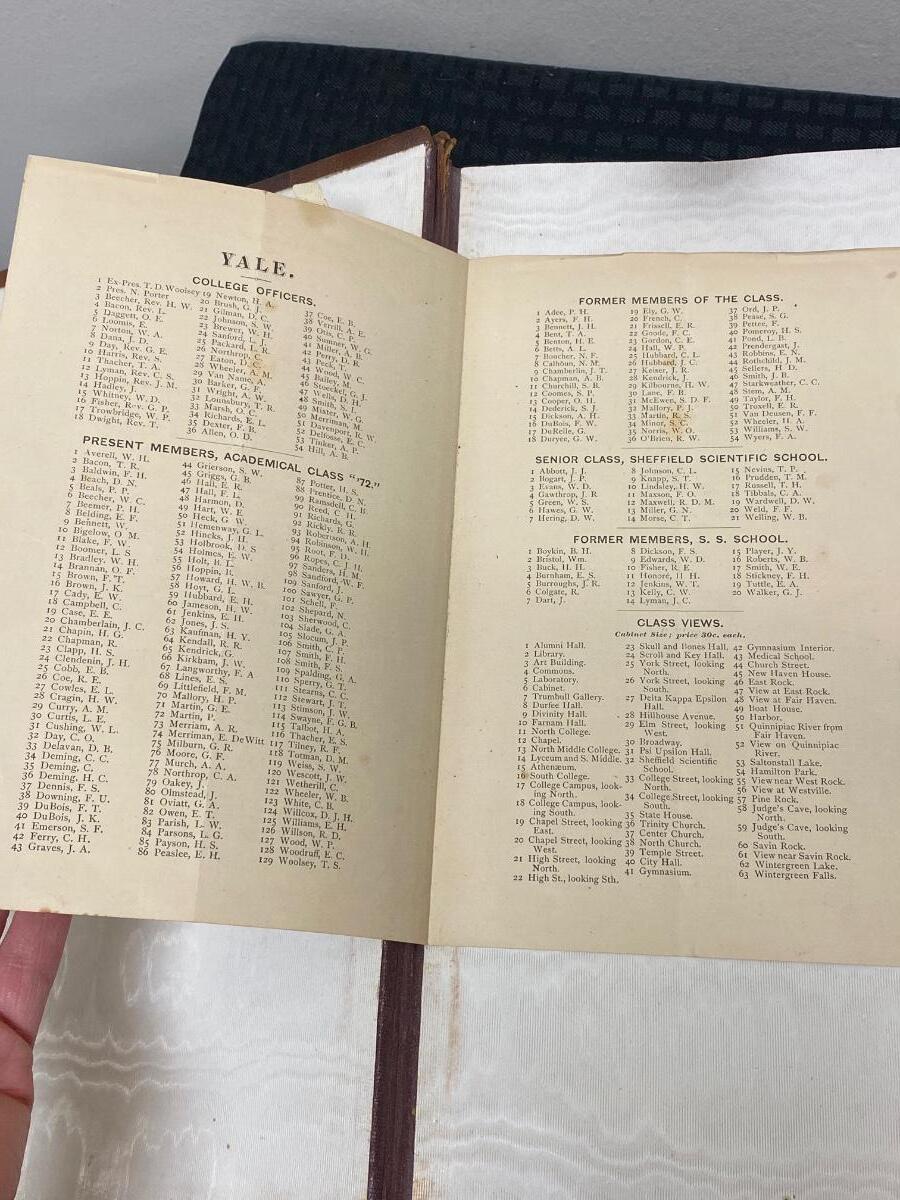 YALE.
COLLEGE OFFICERS.
1 Ex-Pres. T. D. Woolsey
2 Pres. N. Porter
3 Beecher, Rev. H. W.
4 Bacon, Rev. L.
5 Daggett, O. E.
6 Loomis, E.
7 Norton, W. A.
8 Dana, J. D.
9 Day, Rev. G. E.
10 Harris, Rev. S.
11 Thacher, T. A.
12 Lyman, Rev. C. S.
13 Hoppin, Rev. J. M.
14 Hadley, J.
15 Whitney, W. D.
16 Fisher, Rev. G. P.
17 Trowbridge, W. P.
18 Dwight, Rev. T.
19 Newton, H. A.
20 Brush, G. J.
21 Gilman, D. C.
22 Johnson, S. W.
23 Brewer, W. H.
24 Sanford, L. J.
25 Packard, L. R.
26 Northrop, C.
27 Eaton, D. C.
28 Wheeler, A. M.
29 Van Name, A.
30 Barker, G. F.
31 Wright, A. W.
32 Lounsbury, T. R.
33 Marsh, O. C.
34 Richards, E. L.
35 Dexter, F. B.
36 Allen, O. D.
37 Coe, E. B.
38 Verrill, A. E.
39 Otis, C. P.
40 Sumner, W. G.
41 Miller, A. B.
42 Perry, D. B.
43 Peck, T.
44 Wood, W. C.
45 Bailey, M.
46 Stoeckel, G. J.
47 Wells, D. H.
48 Smith, S. I.
49 Mixter, W. G.
50 Merriman, M.
51 Davenport, R. W.
52 DuBosse, E. C.
53 Tinker, A. P.
54 Hill, A. B.
PRESENT MEMBERS, ACADEMICAL CLASS "'72."
1 Averell, W. H.
2 Bacon, T. R.
3 Baldwin, F. H.
4 Beach, D. N.
5 Beals, P. P.
6 Beecher, W. C.
7 Beemer, P. H.
8 Belding, E. F.
9 Bennett, W.
10 Bigelow, O. M.
11 Blake, F. W.
12 Boomer, L. S
13 Bradley, W. H.
14 Brannan, O. F.
15 Brown, F. T.
16 Brown, J. K.
17 Cady, E. W.
18 Campbell, C.
19 Case, E. E.
20 Chamberlain, J. C.
21 Chapin, H. G.
22 Chapman, R.
23 Clapp, H. S.
24 Clendenin, J. H.
25 Cobb, E. B.
26 Coe, R. E.
27 Cowles, E. L.
28 Cragin, H. W.
29 Curry, A. M.
30 Curtis, L. E.
31 Cushing, W. L.
32 Day, C. O.
33 Delavan, D. B.
34 Deming, C. C.
35 Deming, C.
36 Deming, H. C.
37 Dennis, F. S.
38 Downing, F. U.
39 DuBois, F. T.
40 DuBois, J. K.
41 Emerson, S. F.
42 Ferry, C. H.
43 Graves, J. A.
44 Grierson, S. W.
45 Griggs, G. B.
46 Hall, E. R.
47 Hall, F. L.
48 Harmon, D.
49 Hart, W. I.
50 Heck, G. W.
51 Hemenway, G. L.
52 Hincks, J. H.
53 Holbrook, D. S
54 Holmes, E. W.
55 Holt, B. L.
56 Hoppin, B.
57 Howard, H. W. B.
58 Hoyt, G. L.
59 Hubbard, E. H.
60 Jameson, H. W.
61 Jenkins, E. H.
62 Jones, J. S.
63 Kaufman, H. Y.
64 Kendall, R. R.
65 Kendrick, G.
66 Kirkham, J. W.
67 Langworthy, F. A
68 Lines, E. S.
69 Littlefield, F. M.
70 Mallory, H. P.
71 Martin, G. E.
72 Martin, P.
73 Merriam, A. R.
74 Merriman, E. DeWitt
75 Milburn, G. R.
76 Moore, G. F.
77 Murch, A. A.
78 Northrop, C. A.
79 Oakey, J.
80 Olmstead, J.
81 Oviatt, G. A.
82 Owen, E. T.
83 Parish, L. W.
84 Parsons, L. G.
85 Payson, H. S.
86 Peaslee, E. H.
87 Potter, H. S.
88 Prentice, D. N.
89 Ramsdell, C. B.
90 Reed, C. H.
91 Richards, G.
92 Ricky, R. R.
93 Robertson, A. H.
94 Robinson, W. H.
95 Root, F. D.
96 Ropes, C. J. H.
97 Sanders, H. M.
98 Sandford, W. F.
99 Sanford, J.
100 Sawyer, G. P.
101 Schell, F.
102 Shepard, N.
103 Sherwood, C.
104 Slade, G. A.
105 Slocum, J. P.
106 Smith, C. P.
107 Smith, F. H.
108 Smith, F. S.
109 Spalding, G. A.
110 Sperry, G. T.
111 Stearns, C. C.
112 Stewart, J. T.
113 Stimson, J. W.
114 Swayne, F. G. B.
115 Talbot, H. A.
116 Thacher, E. S.
117 Tilney, R. F.
118 Totman, D. M.
119 Weiss, S. W.
120 Wescott, J. W.
121 Wetherill, C.
122 Wheeler, W. B.
123 White, C. B.
124 Willcox, D. J. H.
125 Williams, E. H.
126 Willson, R. D.
127 Wood, W. P.
128 Woodruff, E. C.
129 Woolsey, T. S.
FORMER MEMBERS OF THE CLASS.
1 Adee, P. H.
2 Ayers, F. H.
3 Bennett, J. H.
4 Bent, T. A.
5 Benton, H. E.
6 Betts, A. L.
7 Boucher, N. F.
8 Calhoun, N. M.
9 Chamberlin, J. T.
10 Chapman, A. B.
11 Churchill, S. R.
12 Coomes, S. P.
13 Cooper, O. H.
14 Dederick, S. J.
15 Dickson, A. H.
16 DuBois, F. W.
17 DuRelle, G.
18 Duryee, G. W.
19 Ely, G. W.
20 French, C.
21 Frissell, E. R.
22 Goode, F. C.
23 Gordon, C. E.
24 Hall, W. P.
25 Hubbard, C. L.
26 Hubbard, J. C.
27 Keiser, J. R.
28 Kendrick, J.
29 Kilbourne, H. W.
30 Lane, F. B.
31 McEwen, S. D. F.
32 Mallory, P. J.
33 Martin, R. S.
34 Minor, S. C.
35 Norris, W. O.
36 O'Brien, R. W.
37 Ord, J. P.
38 Pease, S. G.
39 Pettee, F.
40 Pomeroy, H. S.
41 Pond, L. B.
42 Prendergast, J.
43 Robbins, E. N.
44 Rothchild, J. M.
45 Sellers, H D.
46 Smith, J. B.
47 Starkweather, C. C.
48 Stem, A. M.
49 Taylor, F. H.
50 Troxell, E. R.
51 Van Deusen, F. F.
52 Wheeler, H. A.
53 Williams, S. W.
54 Wyers, F. A.
SENIOR CLASS, SHEFFIELD SCIENTIFIC SCHOOL.
1 Abbott, J. J.
2 Bogart, J. P.
3 Evans, W. D.
4 Gawthrop, J. R
5 Green, W. S.
6 Hawes, G. W.
7 Hering, D. W.
8 Johnson, C. L.
9 Knapp, S. T.
10 Lindsley, H. W.
11 Maxson, F. O.
12 Maxwell, R. D. M.
13 Miller, G. N.
14 Morse, C. T.
15 Nevins, T. P.
16 Prudden, T. M.
17 Russell, T. H.
18 Tibbals, C. A.
19 Wardwell, D. W.
20 Weld, F. F.
21 Welling, W. B.
FORMER MEMBERS, S. S. SCHOOL.
1 Boykin, B. H.
2 Bristol, Wm.
3 Buck, H. H.
4 Burnham, E. S.
5 Burroughs, J. R.
6 Colgate, R.
7 Dart, J.
8 Dickson, F. S.
9 Edwards, W. D.
10 Fisher, R. E.
11 Honoré, H H.
12 Jenkins, W. T.
13 Kelly, C. W.
14 Lyman, J. C.
15 Player, J. Y.
16 Roberts, W. B.
17 Smith, W. E.
18 Stickney, F. H.
19 Tuttle, E. A.
20 Walker, G. J.
CLASS VIEWS.
Cabinet Size; price 30c. each.
1 Alumni Hall.
2 Library.
3 Art Building.
4 Commons.
5 Laboratory.
6 Cabinet.
7 Trumbull Gallery.
8 Durfee Hall.
9 Divinity Hall.
10 Farnam Hall.
11 North College.
12 Chapel.
13 North Middle College.
14 Lyceum and S. Middle.
15 Athenæum.
16 South College.
17 College Campus, look-
ing North.
18 College Campus, look-
ing South.
19 Chapel Street, looking
East.
20 Chapel Street, looking
West.
21 High Street, looking
North.
22 High St., looking Sth.
23 Skull and Bones Hall.
24 Scroll and Key Hall.
25 York Street, looking
North.
26 York Street, looking
South.
27 Delta Kappa Epsilon
Hall.
28 Hillhouse Avenue.
29 Elm Street, looking
West.
30 Broadway.
31 Psi Upsilon Hall.
32 Sheffield Scientific
School.
33 College Street, looking
North.
34 College Street, looking
South.
35 State House.
36 Trinity Church.
37 Center Church.
38 North Church.
39 Temple Street.
40 City Hall.
41 Gymnasium.
42 Gymnasium Interior.
43 Medical School.
44 Church Street.
45 New Haven House.
46 East Rock.
47 View at East Rock.
48 View at Fair Haven.
49 Boat House.
50 Harbor.
51 Quinnipiac River from
Fair Haven.
52 View on Quinnipiac
River.
53 Saltonstall Lake.
54 Hamilton Park.
55 View near West Rock.
56 View at Westville.
57 Pine Rock.
58 Judge's Cave, looking
North.
59 Judge's Cave, looking
South.
60 Savin Rock.
61 View near Savin Rock.
62 Wintergreen Lake.
63 Wintergreen Falls.